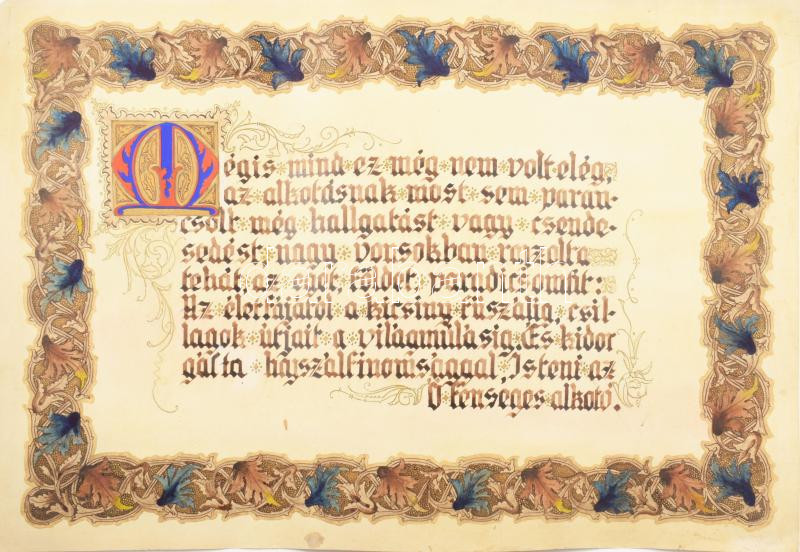 Mégis mind ez még nem volt elég,
az alkotásnak most sem paran-
csolt még hallgatást vagy csende-
sedést, nagy vonsokban rajzolta
tehát, az eget, földet, paradicsomát:
Az életfájától a kicsiny fűszálig, csil-
lagok útjait a világmúlásig. És kidor
gálta hajszálfinomsággal, Isteni az
Ő Fenséges alkotó.